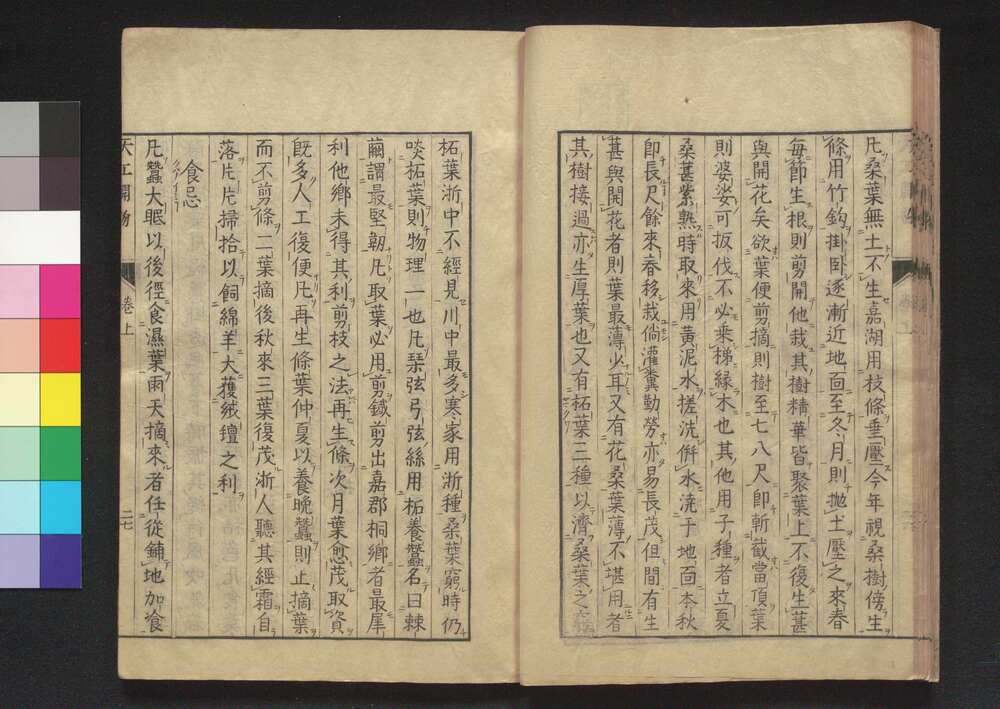 凢桑葉無土不生嘉湖用枝條垂壓今年視桑樹傍生
條用竹鈎掛卧逐漸近地面至冬月則抛土壓之來春
每節生根則剪開他栽其樹精華皆聚葉上不復生葚
與開花矣欲葉便剪摘則樹至七八尺即斬截當頂葉
則婆娑可扳伐不必乘梯緣木也其他用子種者立夏
桑葚紫熟時取來用黃泥水搓洗併水澆于地面本秋
即長尺餘來春移栽倘灌糞勤勞亦易長茂但間有生
葚與開花者則葉最薄少耳又有花桑葉薄不堪用者
其樹接過亦生厚葉也又有柘葉三種以濟桑葉之窮
柘葉浙中不經見川中最多寒家用浙種桑葉窮時仍
啖柘葉則物理一也凢琹弦弓弦絲用柘養蠶名曰棘
繭謂最堅韌凢取葉必用剪鐵剪出嘉郡桐鄉者最犀
利他鄉未得其利剪枝之法再生條次月葉愈茂取資
旣多人工復便凢再生條葉仲夏以養晚蠶則止摘葉
而不剪條二葉摘後秋來三葉復茂浙人聽其經霜自
落片片掃拾以飼綿羊大獲絨氊之利
食忌
凢蠶大眠以後徑食濕葉雨天摘來者任從鋪地加飡
天工開物
卷上
二七